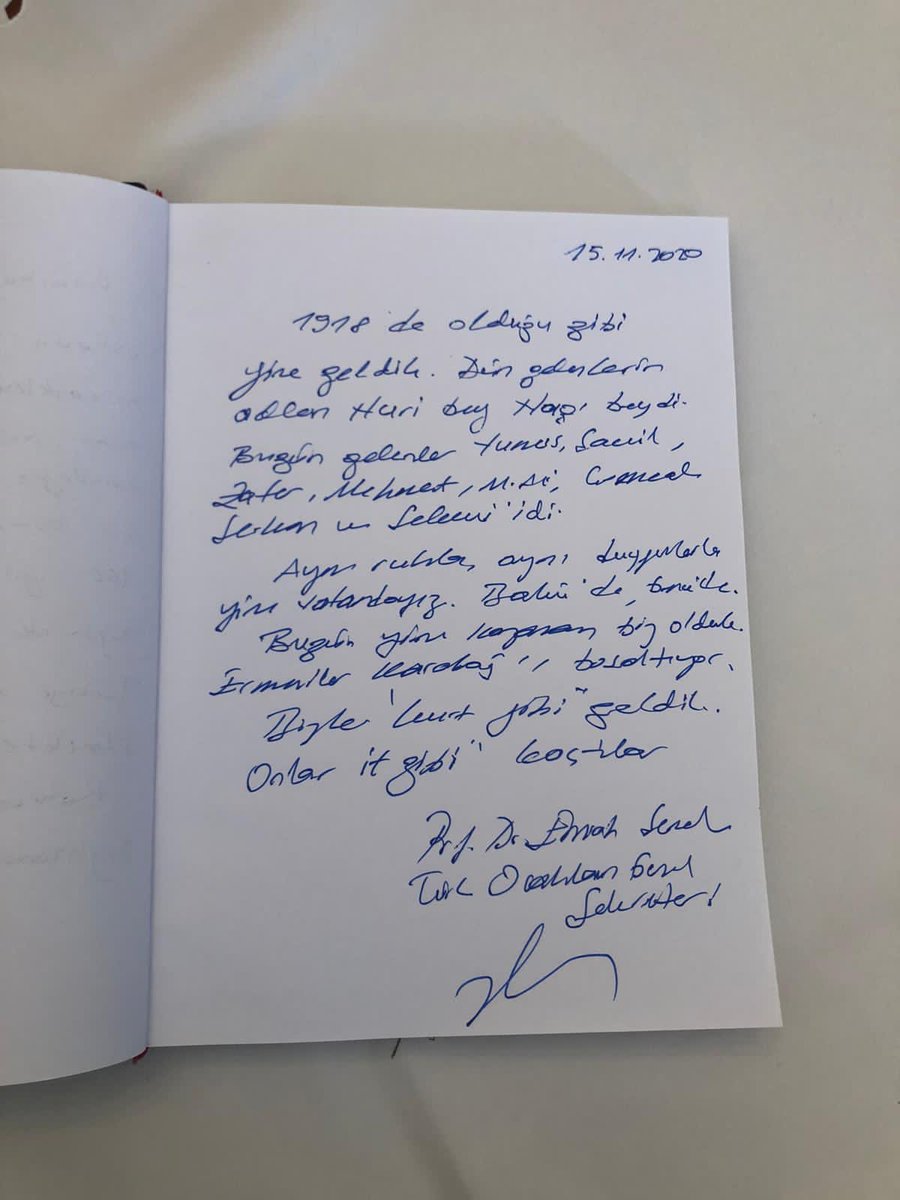 15.11.2020
1918'de olduğu gibi
yine geldik. Dün gelenlerin
adları Nuri bey Nağı beydi.
Bugün gelenler Yunus, Samil,
Zafer, Mehmet, M. Ali,
Serkan ve Selami'idi.
Aynı ruhla, aynı duygularla
yine vatandayız. Bakü'de,
Bugün yine kazanan biz olduk.
Ermeniler Karabağ'ı boşaltıyor.
Bizler "kurt gibi" geldik.
Onlar "it gibi" kaçtılar
Prof. Dr. Emrah Şenel
Türk Ocakları Genel
Sekreteri